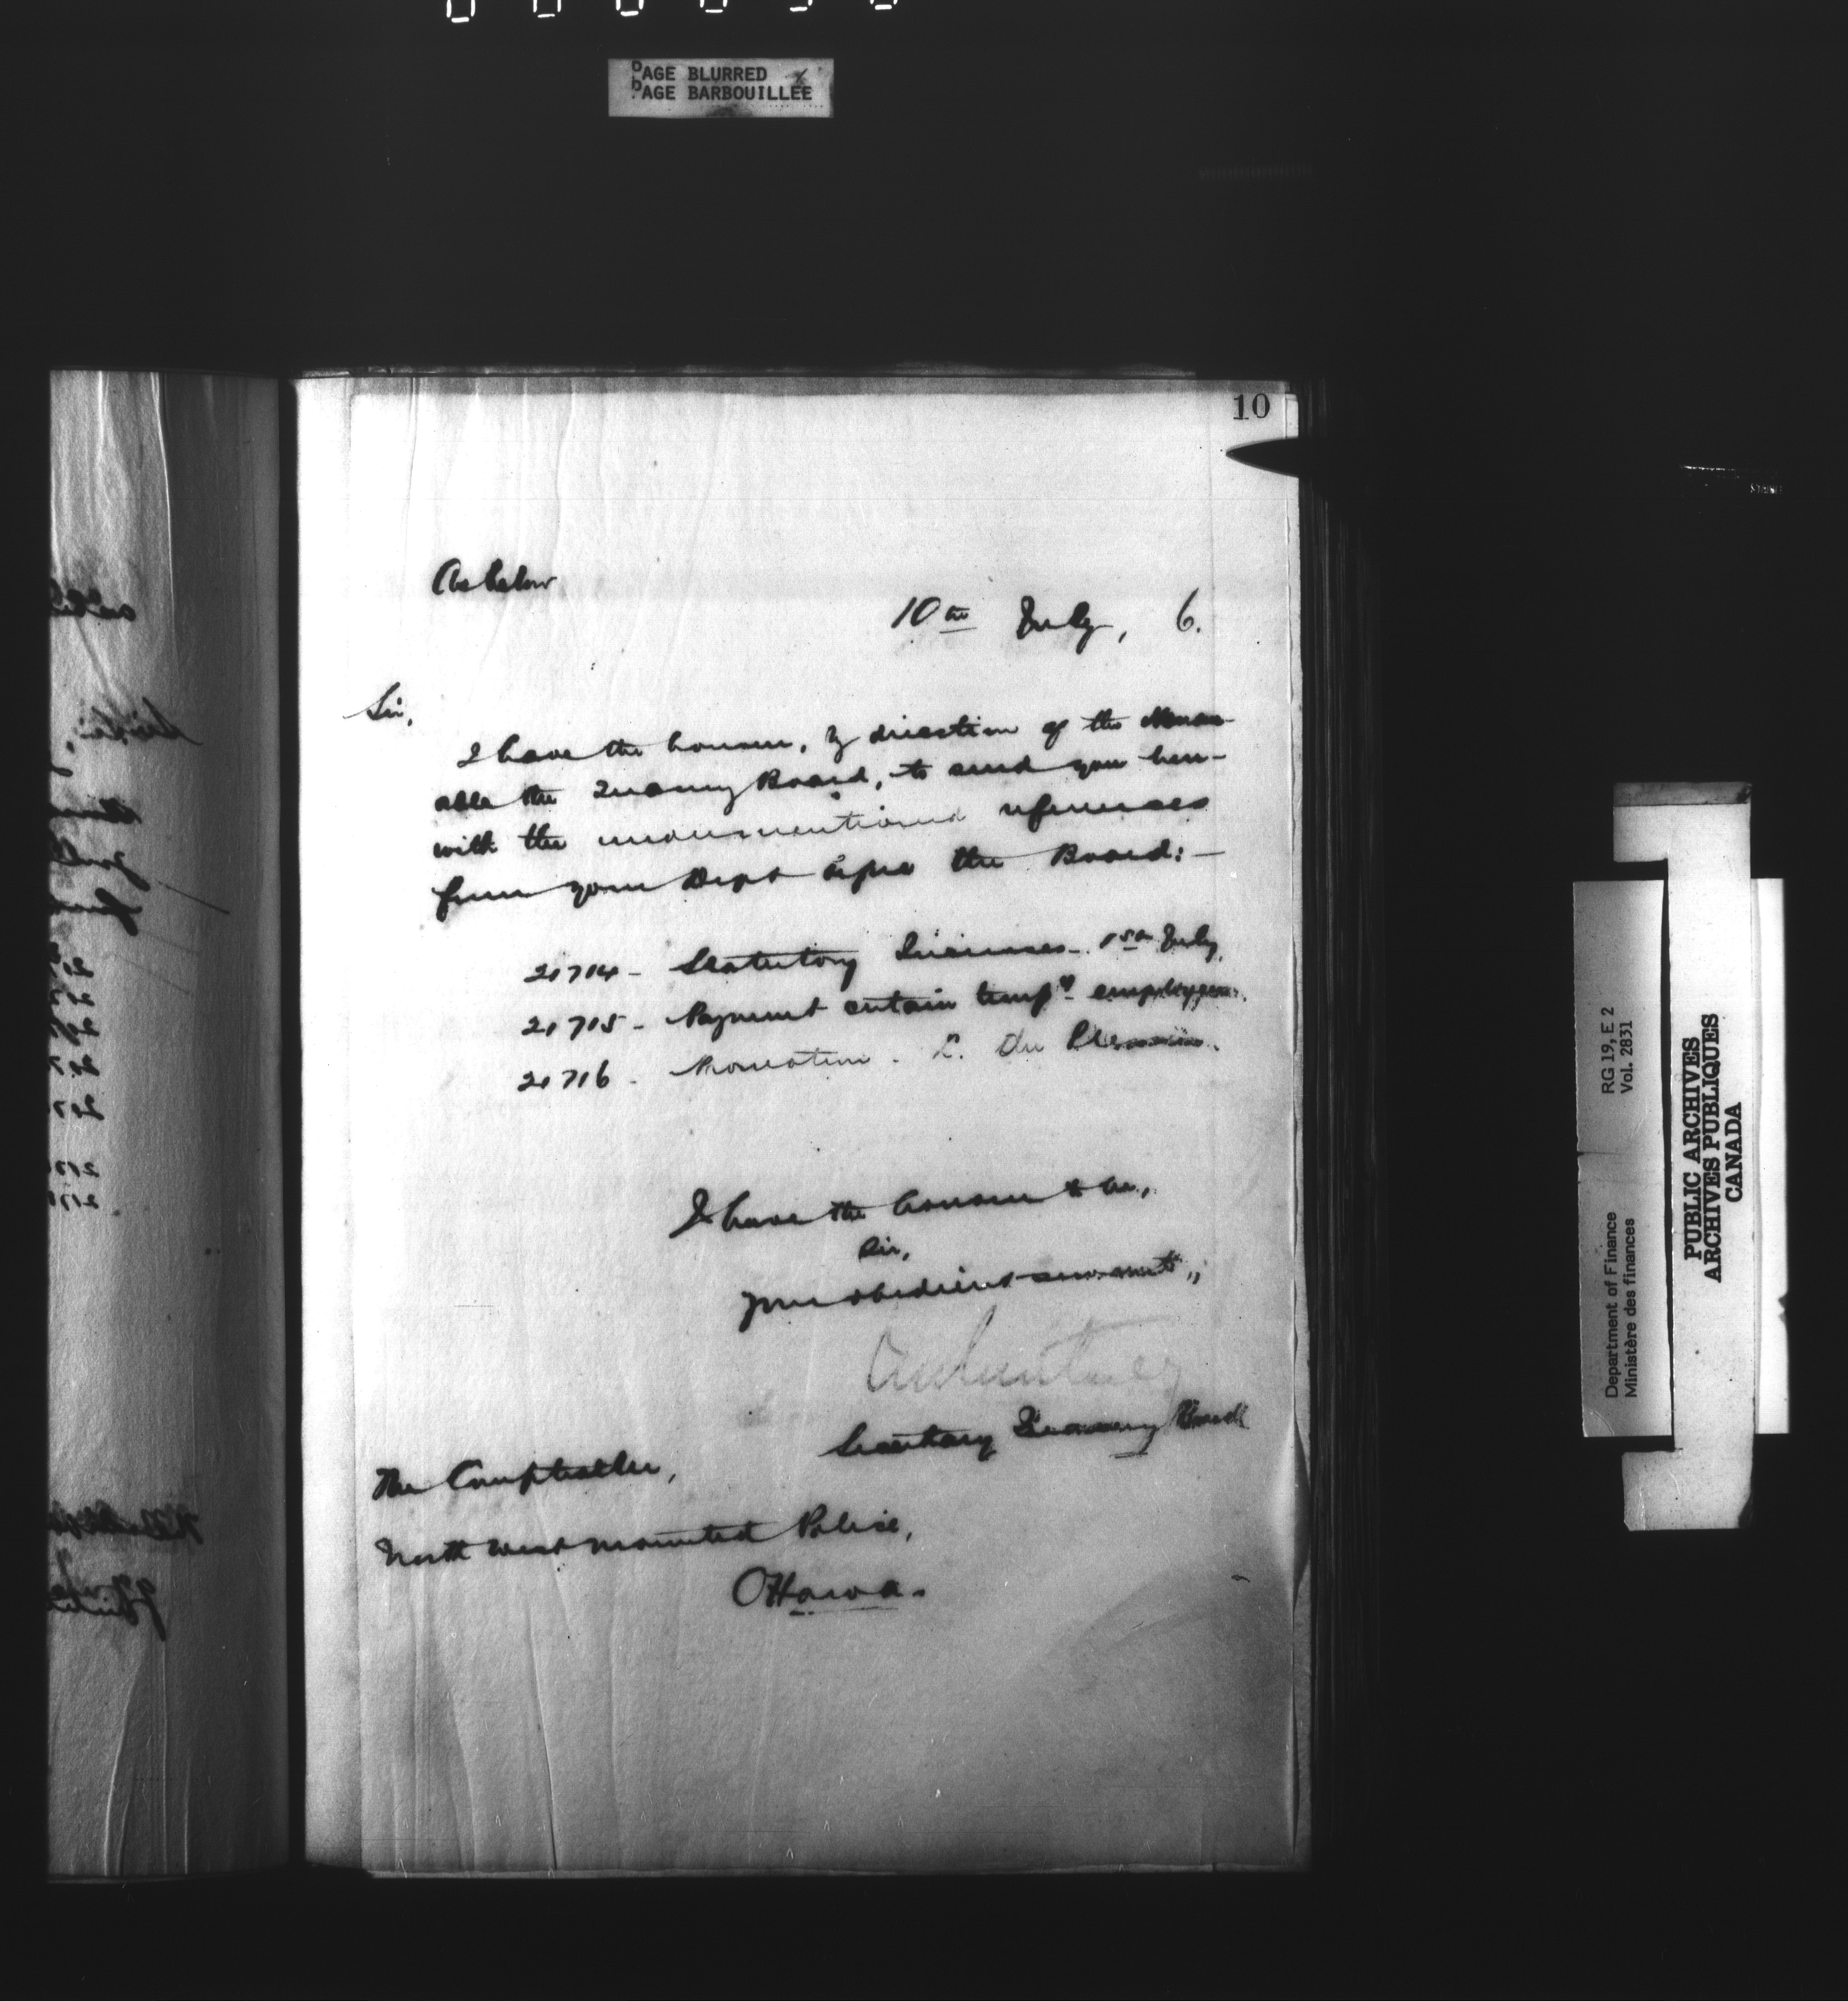 PAGE BLURRED
PAGE BARBOUILLÉE
10
As below
10th July, 6.
Sir,
I have the honour, by direction of the Honour-
able the Treasury Board, to send you here-
with the undermentioned references
from your Dept before the Board:—
21714 - Statutory Increases - 1st July
21715 - Payment certain temp'y employees.
21716 - Promotion - L. du Plessis.
I have the honour to be,
Sir,
Your obedient servant,
Secretary Treasury Board
The Comptroller,
North West Mounted Police,
Ottawa.
RG 19, E 2
Vol. 2831
Department of Finance
Ministère des finances
PUBLIC ARCHIVES
ARCHIVES PUBLIQUES
CANADA